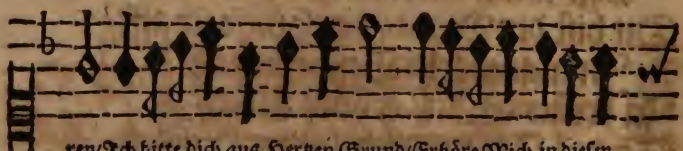 ren/Ich bitte dich aus Hertzen Grund/Erhöre Mich in diesen